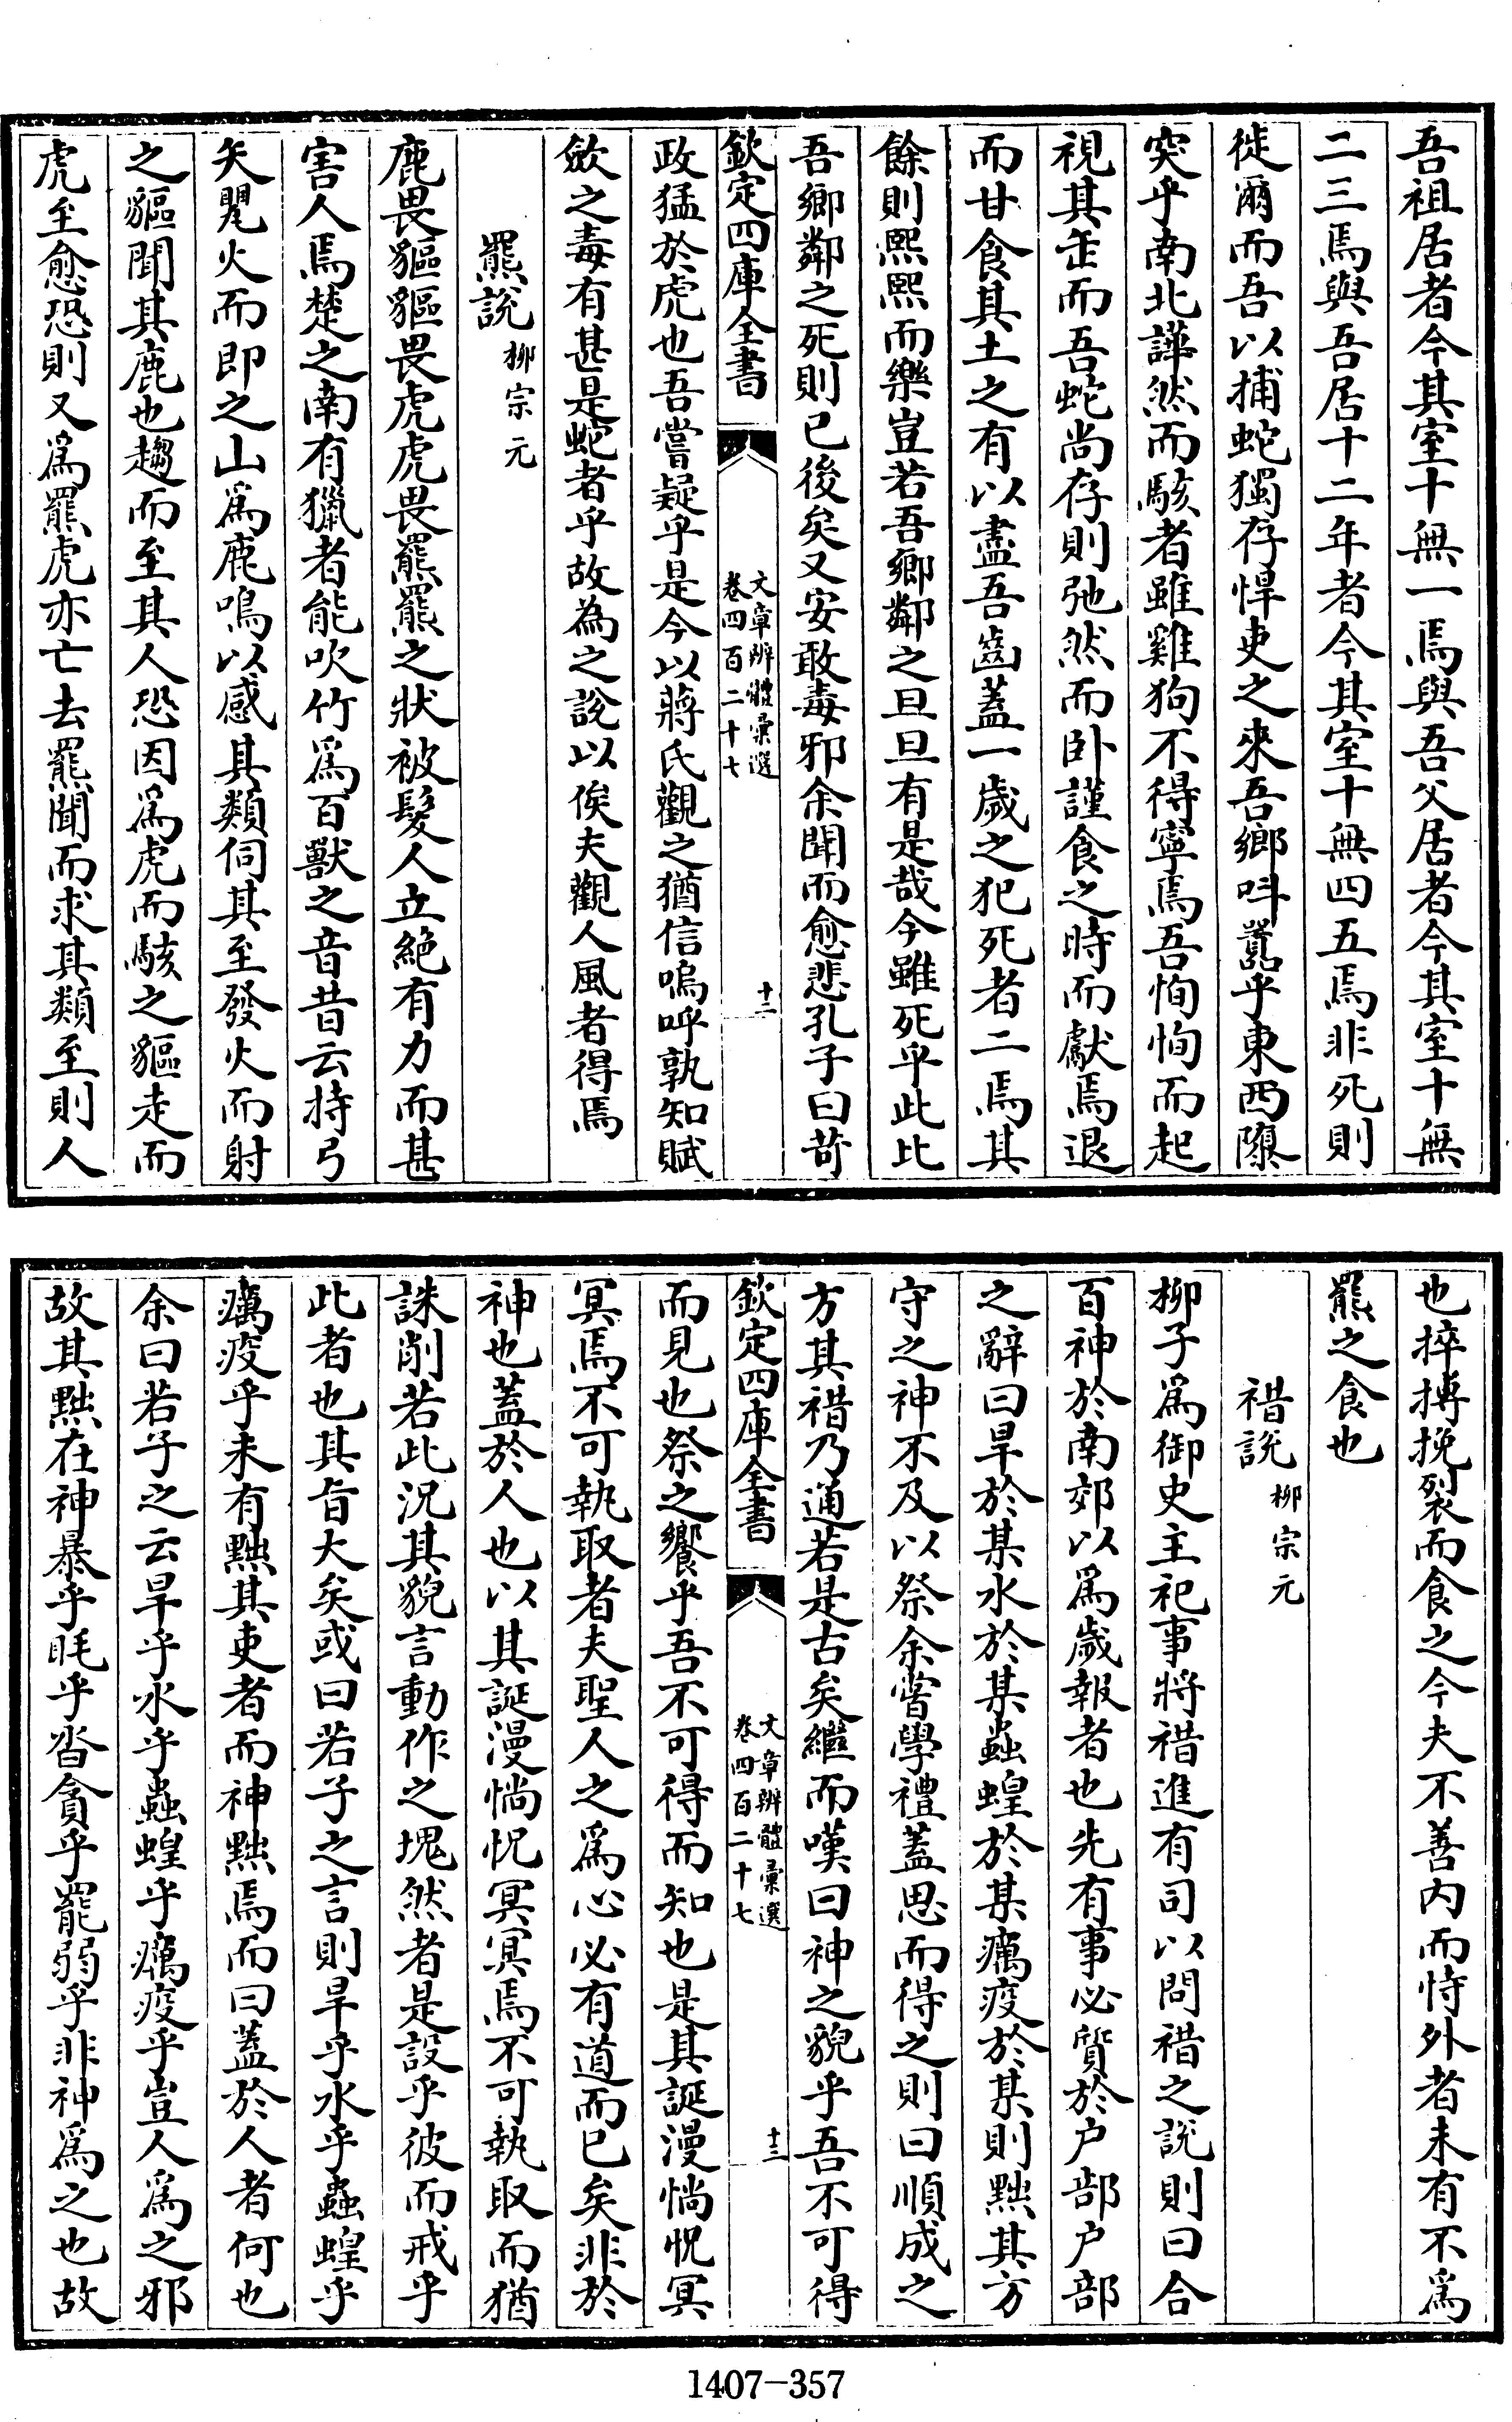 吾祖居者今其室十無一焉與吾父居者今其室十無
二三焉與吾居十二年者今其室十無四五焉非死則
徙爾而吾以捕蛇獨存悍吏之來吾鄉呌囂乎東西隳
突乎南北譁然而駭者雖雞狗不得寧焉吾恂恂而起
視其缶而吾蛇尚存則弛然而卧謹食之時而獻焉退
而甘食其土之有以盡吾齒蓋一歲之犯死者二焉其
餘則熙熙而樂豈若吾鄉鄰之旦旦有是哉今雖死乎此比
吾鄉鄰之死則已後矣又安敢毒邪余聞而愈悲孔子曰苛
欽定四庫全書
文章辨體彙選
卷四百二十七
十二
政猛於虎也吾嘗疑乎是今以蔣氏觀之猶信嗚呼孰知賦
斂之毒有甚是蛇者乎故為之說以俟夫觀人風者得焉
羆說 柳宗元
鹿畏貙貙畏虎虎畏羆羆之狀被髮人立絕有力而甚
害人焉楚之南有獵者能吹竹爲百獸之音昔云持弓
矢甖火而即之山爲鹿鳴以感其類伺其至發火而射
之貙聞其鹿也趨而至其人恐因爲虎而駭之貙走而
虎至愈恐則又爲羆虎亦亡去羆聞而求其類至則人
也捽搏挽裂而食之今夫不善内而恃外者未有不爲
羆之食也
䄍說 柳宗元
柳子爲御史主祀事將䄍進有司以問䄍之說則曰合
百神於南郊以爲歲報者也先有事必質於户部户部
之辭曰旱於某水於某蟲蝗於某癘疫於某則黜其方
守之神不及以祭余嘗學禮蓋思而得之則曰順成之
方其䄍乃通若是古矣繼而嘆曰神之貌乎吾不可得
欽定四庫全書
文章辨體彙選
卷四百二十七
十三
而見也祭之饗乎吾不可得而知也是其誕漫惝怳冥
冥焉不可執取者夫聖人之爲心必有道而已矣非於
神也蓋於人也以其誕漫惝怳冥冥焉不可執取而猶
誅削若此況其貌言動作之塊然者是設乎彼而戒乎
此者也其旨大矣或曰若子之言則旱乎水乎蟲蝗乎
癘疫乎未有黜其吏者而神黜焉而曰蓋於人者何也
余曰若子之云旱乎水乎蟲蝗乎癘疫乎豈人爲之邪
故其黜在神暴乎眊乎沓貪乎罷弱乎非神爲之也故
1407-357